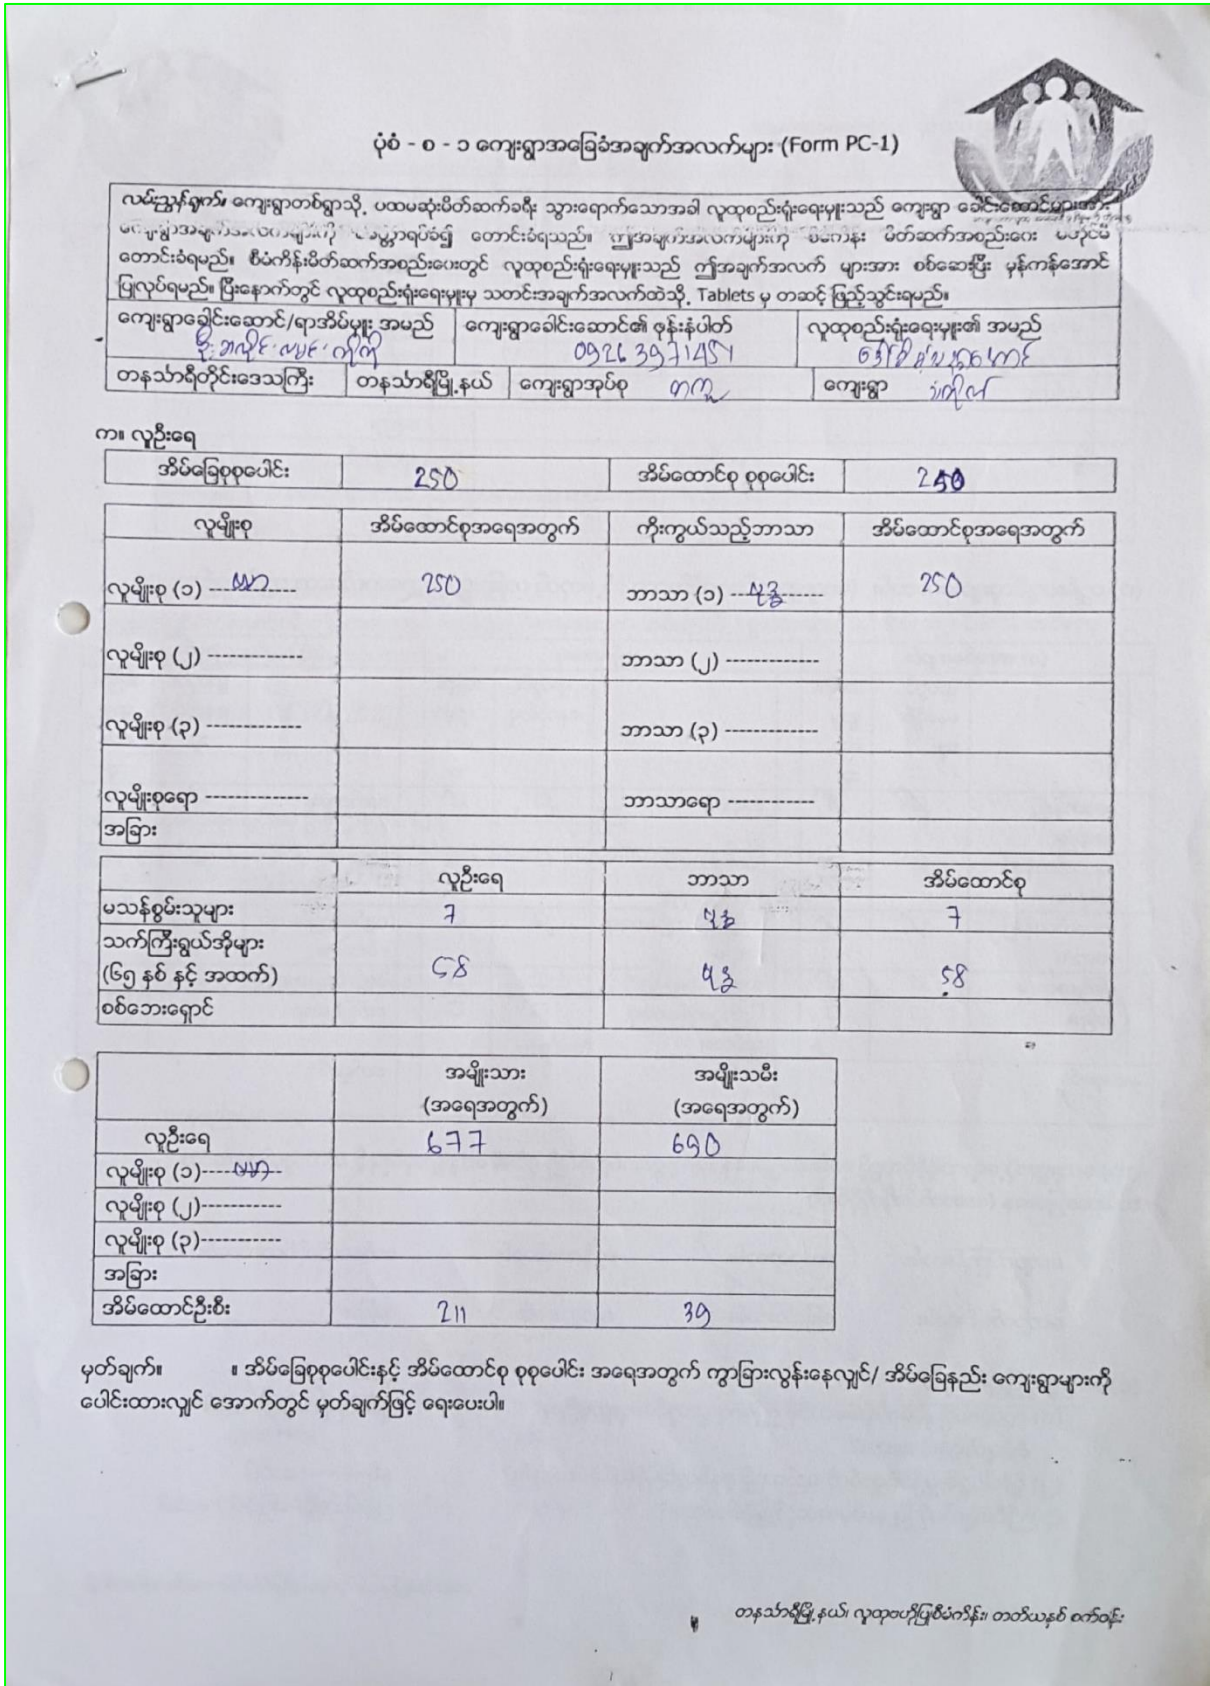 ပုံစံ - စ - ၁ ကျေးရွာအခြေခံအချက်အလက်များ (Form PC-1)
လမ်းညွှန်ချက်။ ကျေးရွာတစ်ရွာသို့ ပထမဆုံးမိတ်ဆက်ခရီး သွားရောက်သောအခါ လူထုစည်းရုံးရေးမှူးသည် ကျေးရွာ ခေါင်းဆောင်များအား
တောင်းခံရသည်။ ဤအချက်အလက်များကို စီမံကိန်း မိတ်ဆက်အစည်းဝေး မတိုင်မီ
တောင်းခံရမည်။ စီမံကိန်းမိတ်ဆက်အစည်းဝေးတွင် လူထုစည်းရုံးရေးမှူးသည် ဤအချက်အလက် များအား စစ်ဆေးပြီး မှန်ကန်အောင်
ပြုလုပ်ရမည်။ ပြီးနောက်တွင် လူထုစည်းရုံးရေးမှူးမှ သတင်းအချက်အလက်ထဲသို့ Tablets မှ တဆင့် ဖြည့်သွင်းရမည်။
ကျေးရွာခေါင်းဆောင်/ရာအိမ်မှူး အမည် ကျေးရွာခေါင်းဆောင်၏ ဖုန်းနံပါတ် လူထုစည်းရုံးရေးမှူး၏ အမည်
တနင်္သာရီတိုင်းဒေသကြီး တနင်္သာရီမြို့နယ် ကျေးရွာအုပ်စု တကူ ကျေးရွာ
က။ လူဦးရေ
အိမ်ခြေစုစုပေါင်း 250 အိမ်ထောင်စု စုစုပေါင်း 250
လူမျိုးစု အိမ်ထောင်စုအရေအတွက် ကိုးကွယ်သည့်ဘာသာ အိမ်ထောင်စုအရေအတွက်
လူမျိုးစု (၁) ဗမာ 250 ဘာသာ (၁) ဗုဒ္ဓ 250
လူမျိုးစု (၂) ------------- ဘာသာ (၂) -------------
လူမျိုးစု (၃) ------------- ဘာသာ (၃) -------------
လူမျိုးစုရော -------------- ဘာသာရော ------------
အခြား
လူဦးရေ ဘာသာ အိမ်ထောင်စု
မသန်စွမ်းသူများ 7 ဗုဒ္ဓ 7
သက်ကြီးရွယ်အိုများ
(၆၅ နှစ် နှင့် အထက်) 58 ဗုဒ္ဓ 58
စစ်ဘေးရှောင်
အမျိုးသား အမျိုးသမီး
(အရေအတွက်) (အရေအတွက်)
လူဦးရေ 677 690
လူမျိုးစု (၁) ဗမာ
လူမျိုးစု (၂)-----------
လူမျိုးစု (၃)-----------
အခြား
အိမ်ထောင်ဦးစီး 211 39
မှတ်ချက်။ ။ အိမ်ခြေစုစုပေါင်းနှင့် အိမ်ထောင်စု စုစုပေါင်း အရေအတွက် ကွာခြားလွန်းနေလျှင်/ အိမ်ခြေနည်း ကျေးရွာများကို
ပေါင်းထားလျှင် အောက်တွင် မှတ်ချက်ဖြင့် ရေးပေးပါ။
တနင်္သာရီမြို့နယ်၊ လူထုဗဟိုပြုစီမံကိန်း၊ တတိယနှစ် စက်ဝန်း